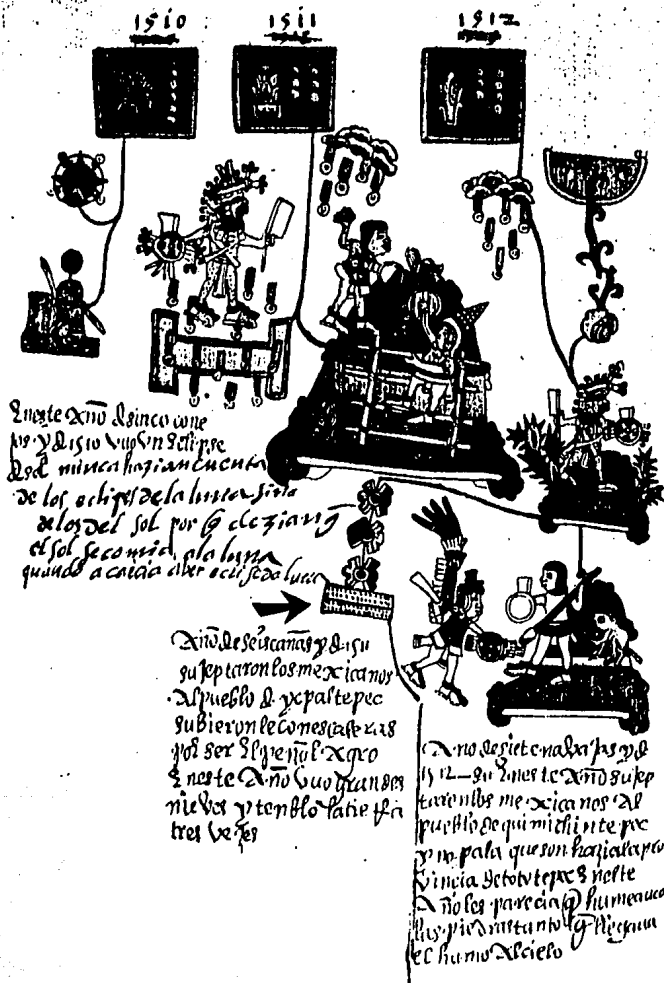 1510
1511
1512
Eneste año de sinco cone
jos y de 1510 vuo vn eclipse
de sol nunca hazian cuenta
de los eclipses de la luna sino
de los del sol por q̃ deziang̃
el sol se comia a la luna
quando acaecia aver eclipse de luna
Año de seis cañas y de 1511
sujeptaron los mexicanos
Al pueblo de yxpaltepec
subieronle con escaleras
por ser El peñol Agro
Eneste Año vuo grandes
nieves y tenblo la tierra
tres vezes
Año de siete nabajas y de
1512 Eneste Año sujep
taron los mexicanos Al
pueblo de quimichintepec
y nopala que son hazia la pro
vincia de tototepec Eneste
Año les parecia q̃ humeauā
las piedras tanto q̃ llegaua
el humo Al cielo